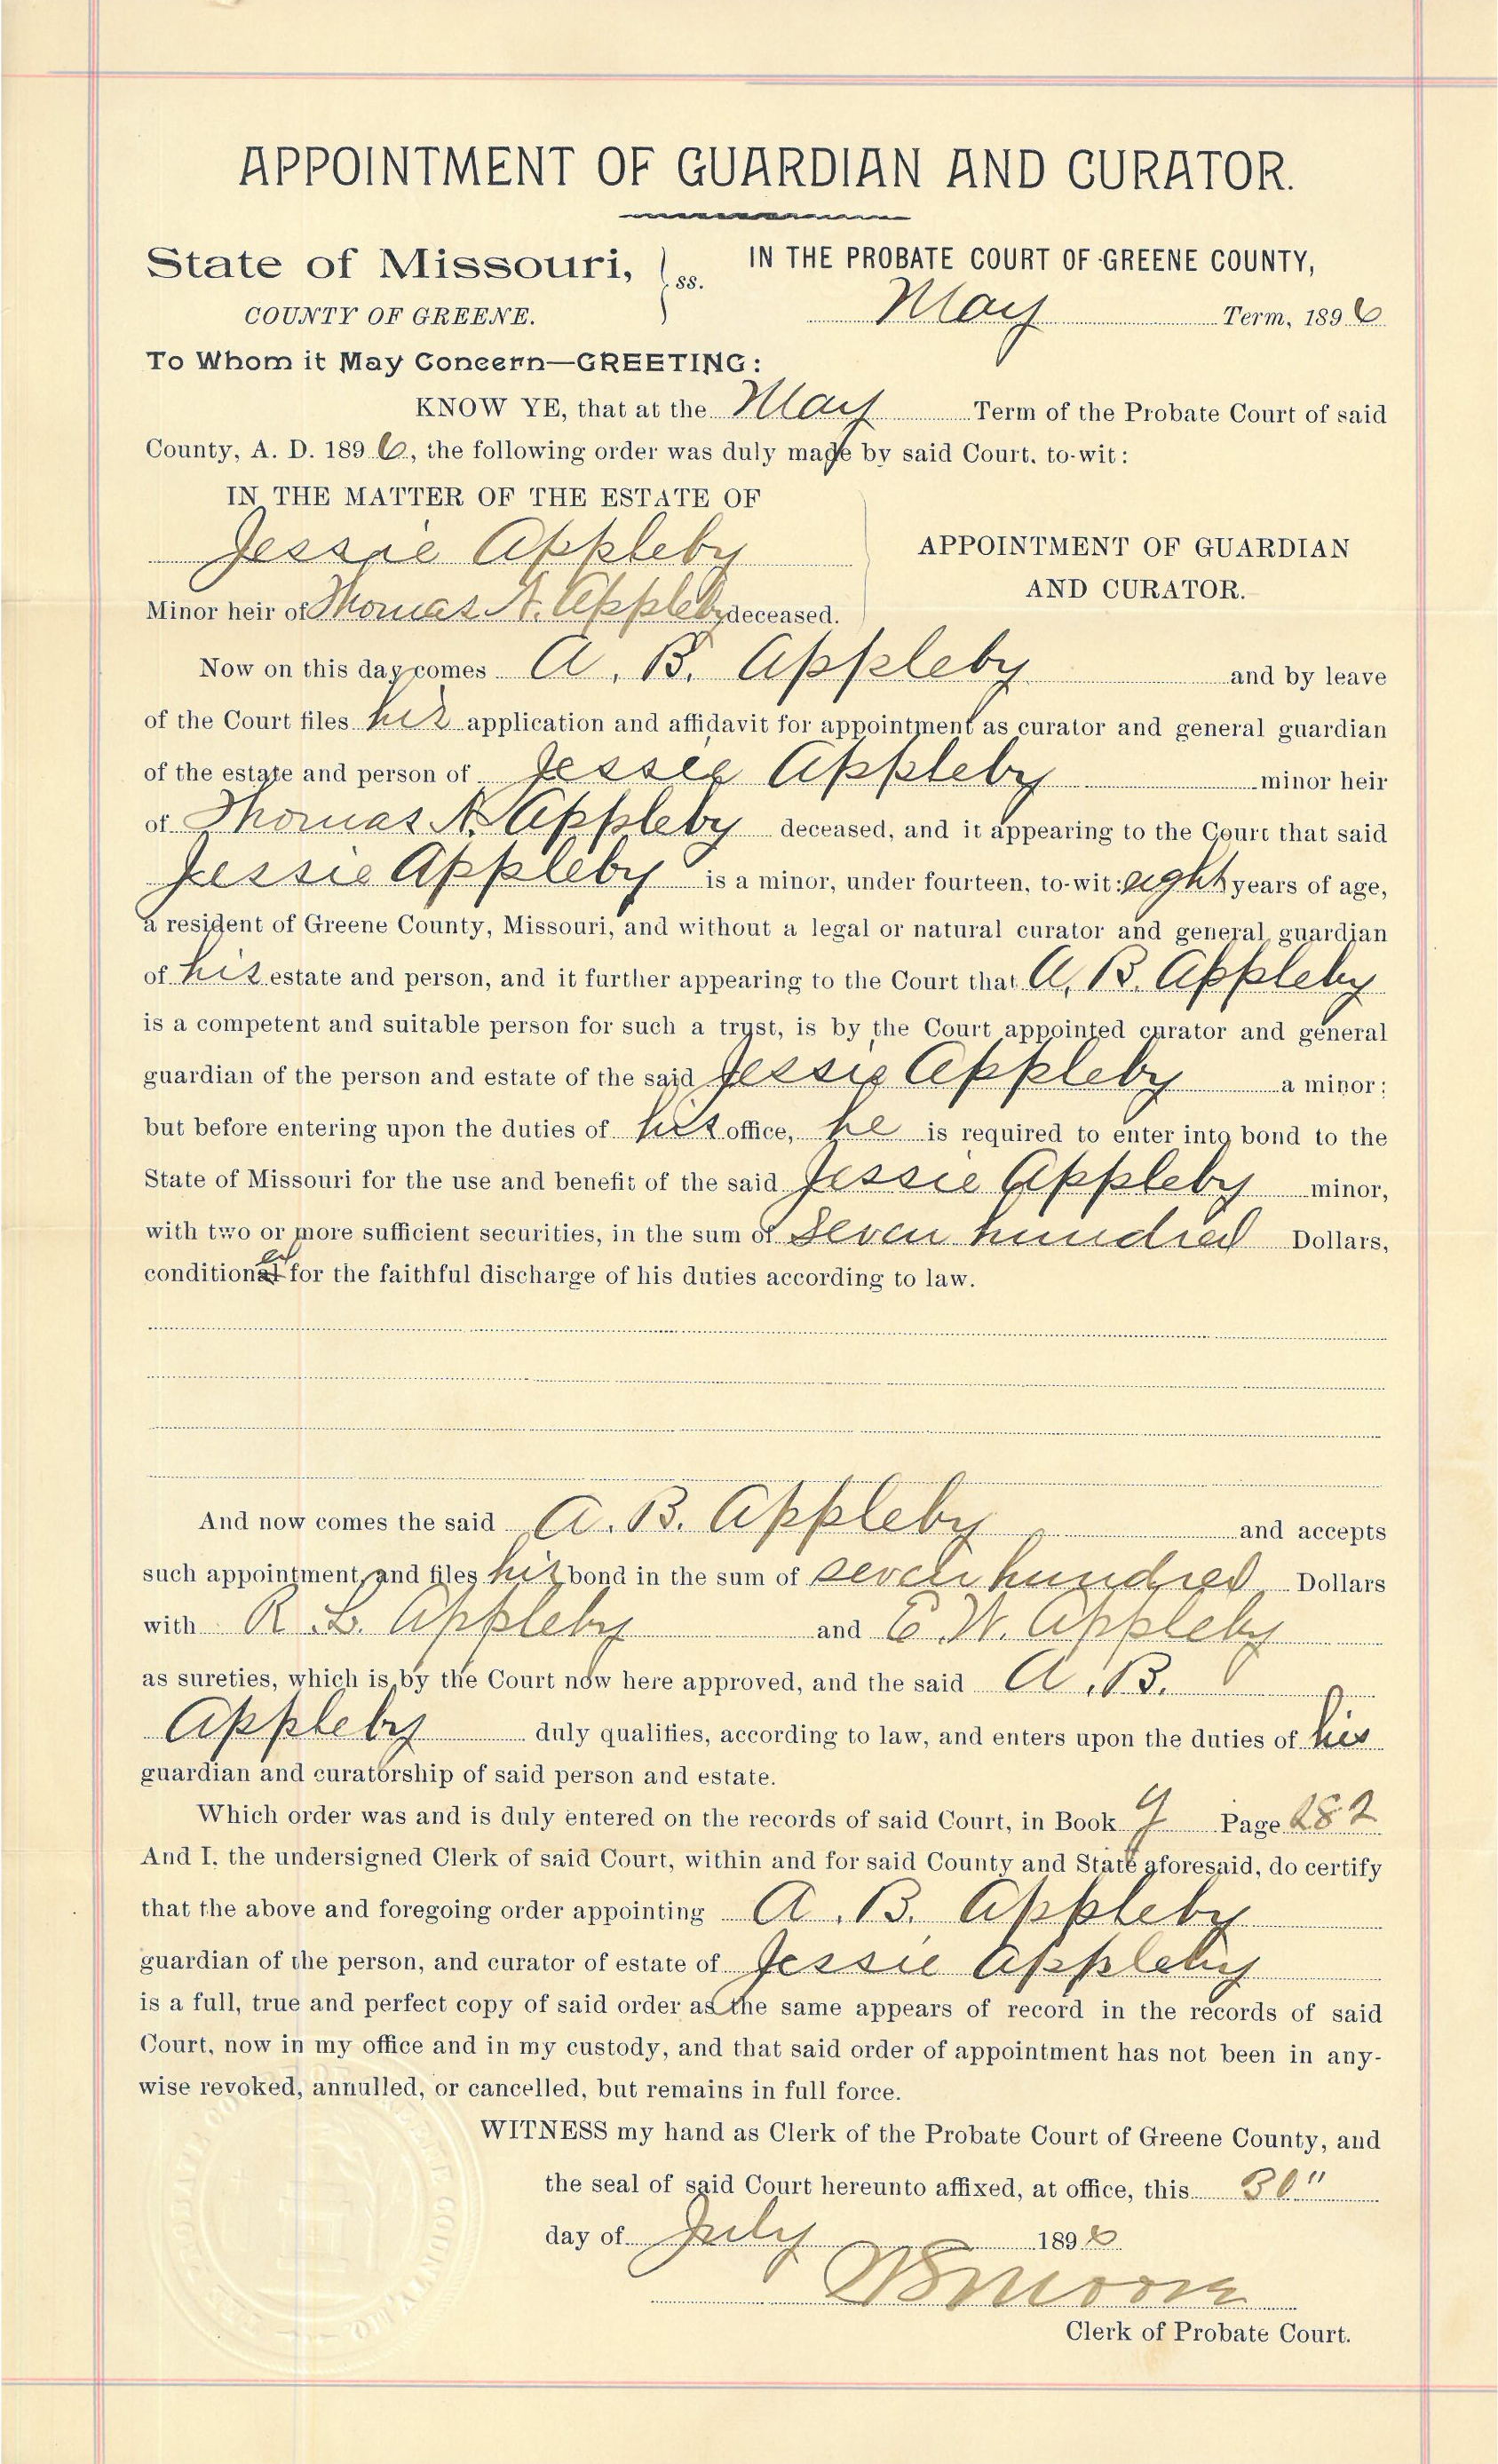 APPOINTMENT OF GUARDIAN AND CURATOR.
State of Missouri, } ss. IN THE PROBATE COURT OF GREENE COUNTY,
COUNTY OF GREENE. May Term, 1896
To Whom it May Concern—GREETING:
KNOW YE, that at the May Term of the Probate Court of said
County, A. D. 1896, the following order was duly made by said Court, to-wit:
IN THE MATTER OF THE ESTATE OF
Jessie Appleby
APPOINTMENT OF GUARDIAN
AND CURATOR.
Minor heir of Thomas A. Appleby deceased.
Now on this day comes A. B. Appleby and by leave
of the Court files his application and affidavit for appointment as curator and general guardian
of the estate and person of Jessie Appleby minor heir
of Thomas A. Appleby deceased, and it appearing to the Court that said
Jessie Appleby is a minor, under fourteen, to-wit: eight years of age,
a resident of Greene County, Missouri, and without a legal or natural curator and general guardian
of his estate and person, and it further appearing to the Court that A. B. Appleby
is a competent and suitable person for such a trust, is by the Court appointed curator and general
guardian of the person and estate of the said Jessie Appleby a minor;
but before entering upon the duties of his office, he is required to enter into bond to the
State of Missouri for the use and benefit of the said Jessie Appleby minor,
with two or more sufficient securities, in the sum of Seven hundred Dollars,
conditioned for the faithful discharge of his duties according to law.
And now comes the said A. B. Appleby and accepts
such appointment, and files his bond in the sum of seven hundred Dollars
with R. L. Appleby and E. W. Appleby
as sureties, which is by the Court now here approved, and the said A. B.
Appleby duly qualifies, according to law, and enters upon the duties of his
guardian and curatorship of said person and estate.
Which order was and is duly entered on the records of said Court, in Book Page 282
And I, the undersigned Clerk of said Court, within and for said County and State aforesaid, do certify
that the above and foregoing order appointing A. B. Appleby
guardian of the person, and curator of estate of Jessie Appleby
is a full, true and perfect copy of said order as the same appears of record in the records of said
Court, now in my office and in my custody, and that said order of appointment has not been in any-
wise revoked, annulled, or cancelled, but remains in full force.
WITNESS my hand as Clerk of the Probate Court of Greene County, and
the seal of said Court hereunto affixed, at office, this 30"
day of July 1896
Moore
Clerk of Probate Court.